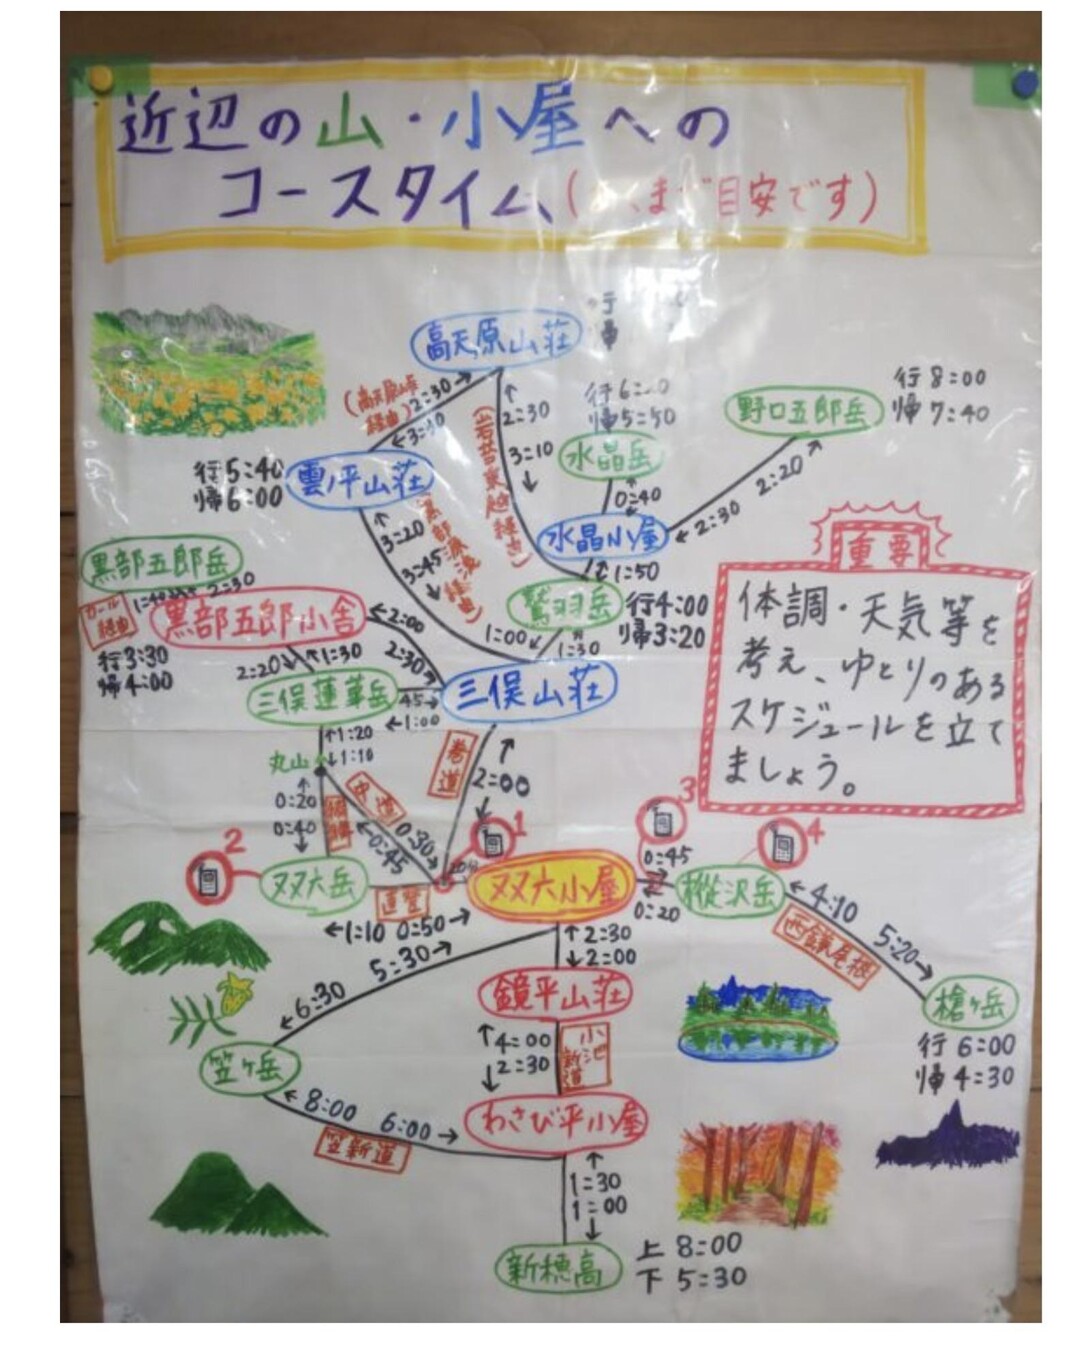 近辺の山・小屋への
コースタイム(あくまで目安です)
高天原山荘
行
帰
(高天原峠
経由)
2:30→
←3:10
(岩苔乗越経由)
↑
2:30
3:10
↓
行6:20
帰5:50
水晶岳
0:40
野口五郎岳
行8:00
帰7:40
2:20
←2:30
行5:40
帰6:00
雲ノ平山荘
↑
3:20
3:45
↓
(黒部源流経由)
水晶小屋
1:50
鷲羽岳
行4:00
帰3:20
1:00
1:30
重要
体調・天気等を
考え、ゆとりのある
スケジュールを立て
ましょう。
黒部五郎岳
2:30
カール
経由
黒部五郎小舎
行3:30
帰4:00
←2:00
2:30
2:20↓
↑1:30
三俣蓮華岳
45→
←1:00
三俣山荘
↑1:20
↓1:10
丸山
巻道
2:00
中道
0:30
0:45
0:20
0:40
↓
稜線
1
2
3
4
双六岳
直登
双六小屋
0:45
0:20
樅沢岳
←1:10 0:50→
←4:10
5:20→
西鎌尾根
槍ヶ岳
行 6:00
帰 4:30
5:30→
←6:30
↑2:30
↓2:00
鏡平山荘
笠ヶ岳
↑4:00
2:30
↓
小池
新道
わさび平小屋
←8:00
6:00→
笠新道
↑
1:30
1:00
↓
新穂高
上 8:00
下 5:30